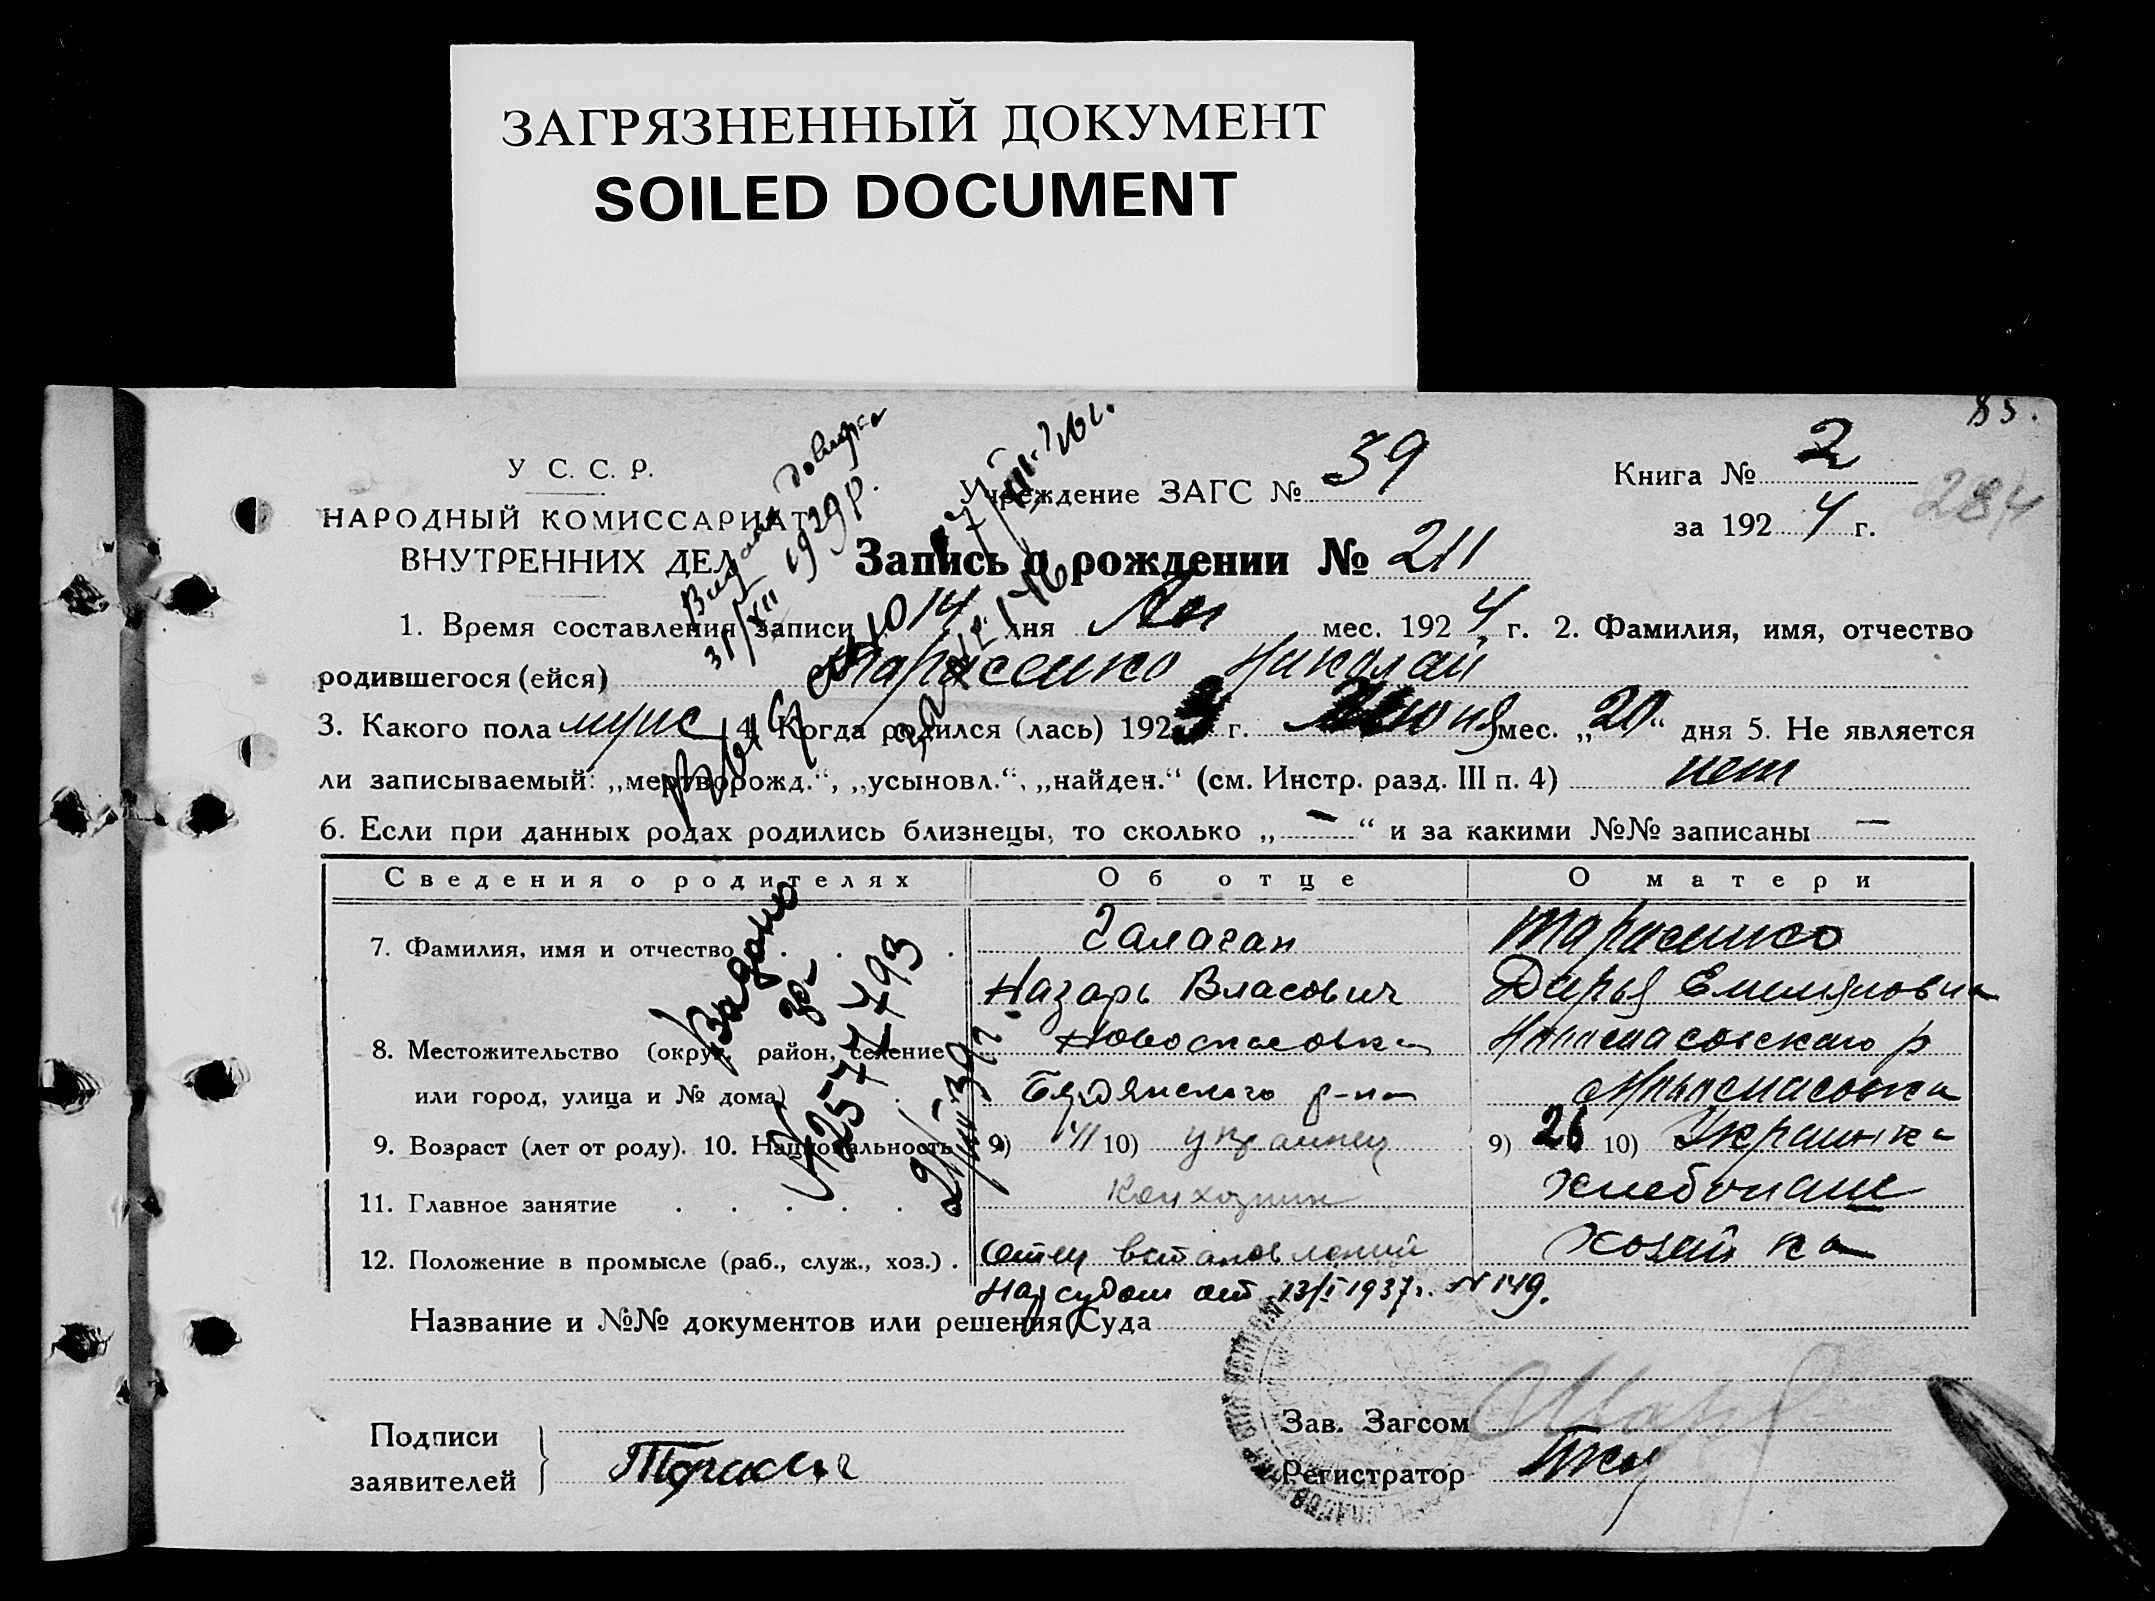 ЗАГРЯЗНЕННЫЙ ДОКУМЕНТ
SOILED DOCUMENT
85.
У С. С. Р.
НАРОДНЫЙ КОМИССАРИАТ
ВНУТРЕННИХ ДЕЛ
Учреждение ЗАГС № 39
Книга № 2
284
за 1924 г.
Запись о рождении № 211
1. Время составления записи 14 дня мес. 1924 г. 2. Фамилия, имя, отчество
родившегося (ейся) Тарасенко Николай
3. Какого пола муж 4. Когда родился (лась) 1923 г. Июня мес. „20“ дня 5. Не является
ли записываемый: „мертворожд.“, „усыновл.“, „найден.“ (см. Инстр. разд. III п. 4) нет
6. Если при данных родах родились близнецы, то сколько „—“ и за какими №№ записаны —
Сведения о родителях Об отце О матери
7. Фамилия, имя и отчество Галаган Тарасенко
Назарь Власович Дарья Емельяновна
8. Местожительство (округ, район, селение Новоспасовка Новоспасовского р
или город, улица и № дома) Бердянского р-на Новоспасовка
9. Возраст (лет от роду). 10. Национальность 9) 41 10) украинец 9) 26 10) Украинка
11. Главное занятие Колхозник хлебопаш
12. Положение в промысле (раб., служ., хоз.) Отец встановлений хозяйка
Нарсудом от 13/I 1937г. N 149.
Название и №№ документов или решения Суда
Зав. Загсом
Подписи
заявителей
Регистратор
Видана довідка
31/XII 1939р.
Выдано
за
№257493